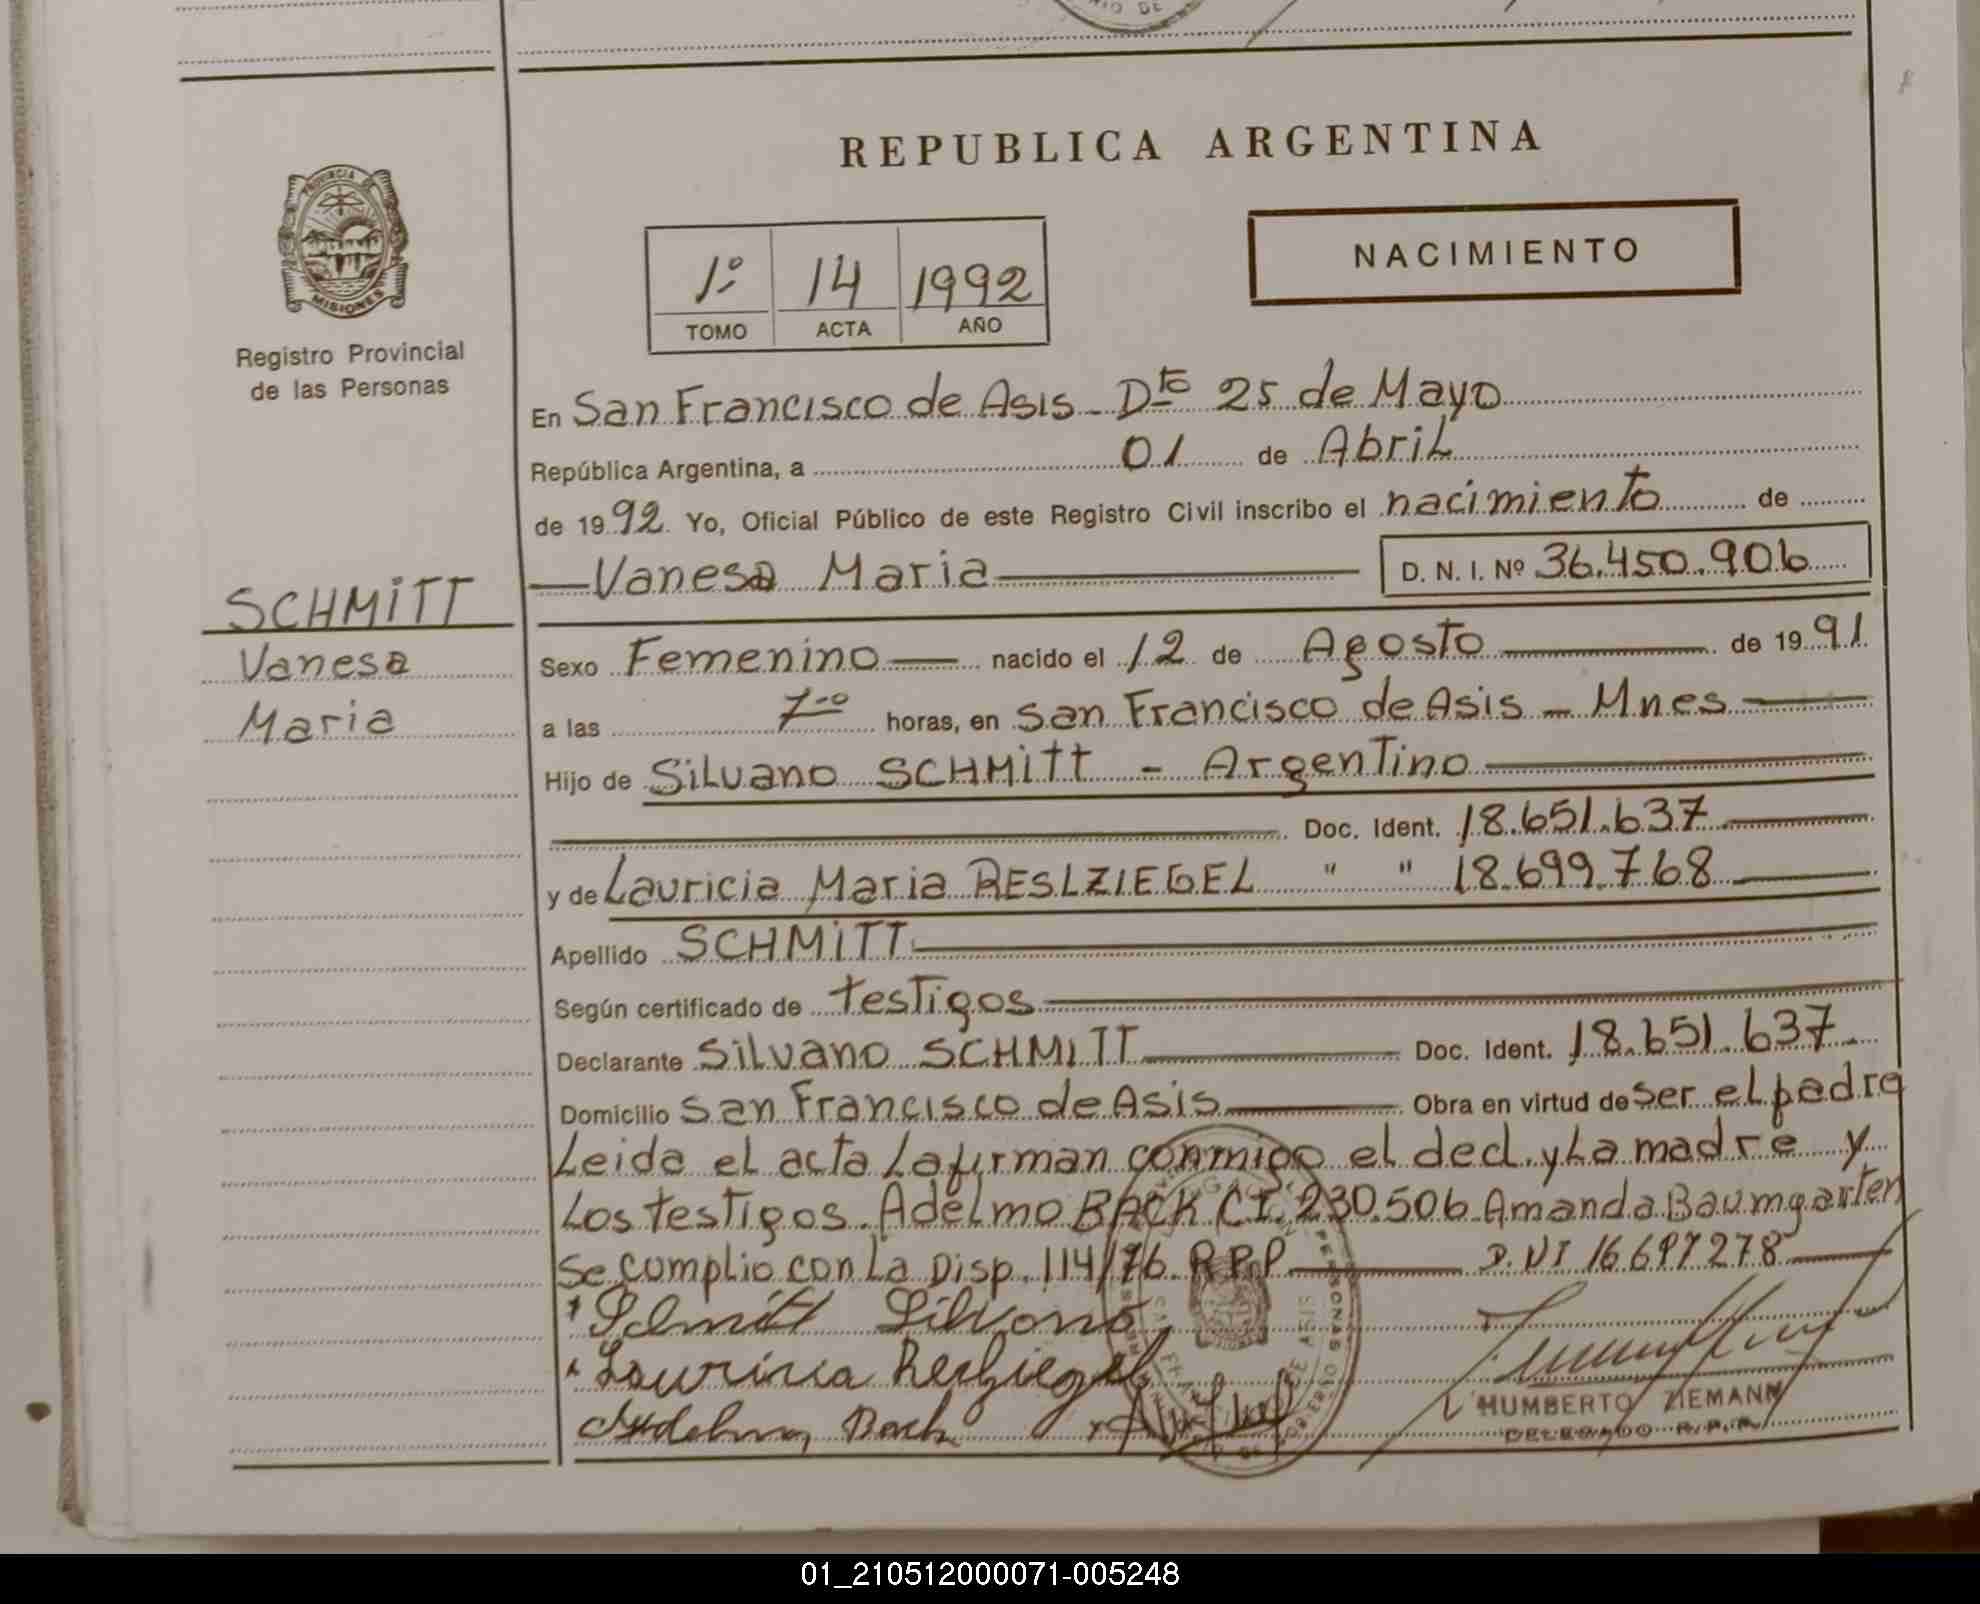 REPUBLICA ARGENTINA
PROVINCIA DE
MISIONES
Registro Provincial
de las Personas
1º 14 1992
TOMO ACTA AÑO
NACIMIENTO
En San Francisco de Asis - Dto 25 de Mayo
República Argentina, a 01 de Abril
de 1992 Yo, Oficial Público de este Registro Civil inscribo el nacimiento de
Vanesa Maria D. N. I. Nº 36.450.906
SCHMITT
Vanesa
Maria
Sexo Femenino nacido el 12 de Agosto de 1991
a las 7-o horas, en San Francisco de Asis - Mnes
Hijo de Silvano SCHMITT - Argentino
Doc. Ident. 18.651.637
y de Lauricia Maria RESLZIEGEL " " 18.699.768
Apellido SCHMITT
Según certificado de testigos
Declarante Silvano SCHMITT Doc. Ident. 18.651.637
Domicilio San Francisco de Asis Obra en virtud de ser el padre
Leida el acta La firman conmigo el decl. y La madre y
Los testigos Adelmo BACK CI. 230.506 Amanda Baumgarten
Se cumplio con La Disp. 114/76 R.P.P D.NI 16697278
Schmitt Silvano
Lauricia Reslziegel
Adelmo Back
HUMBERTO ZIEMANN
DELEGADO R.P.P.
01_210512000071-005248